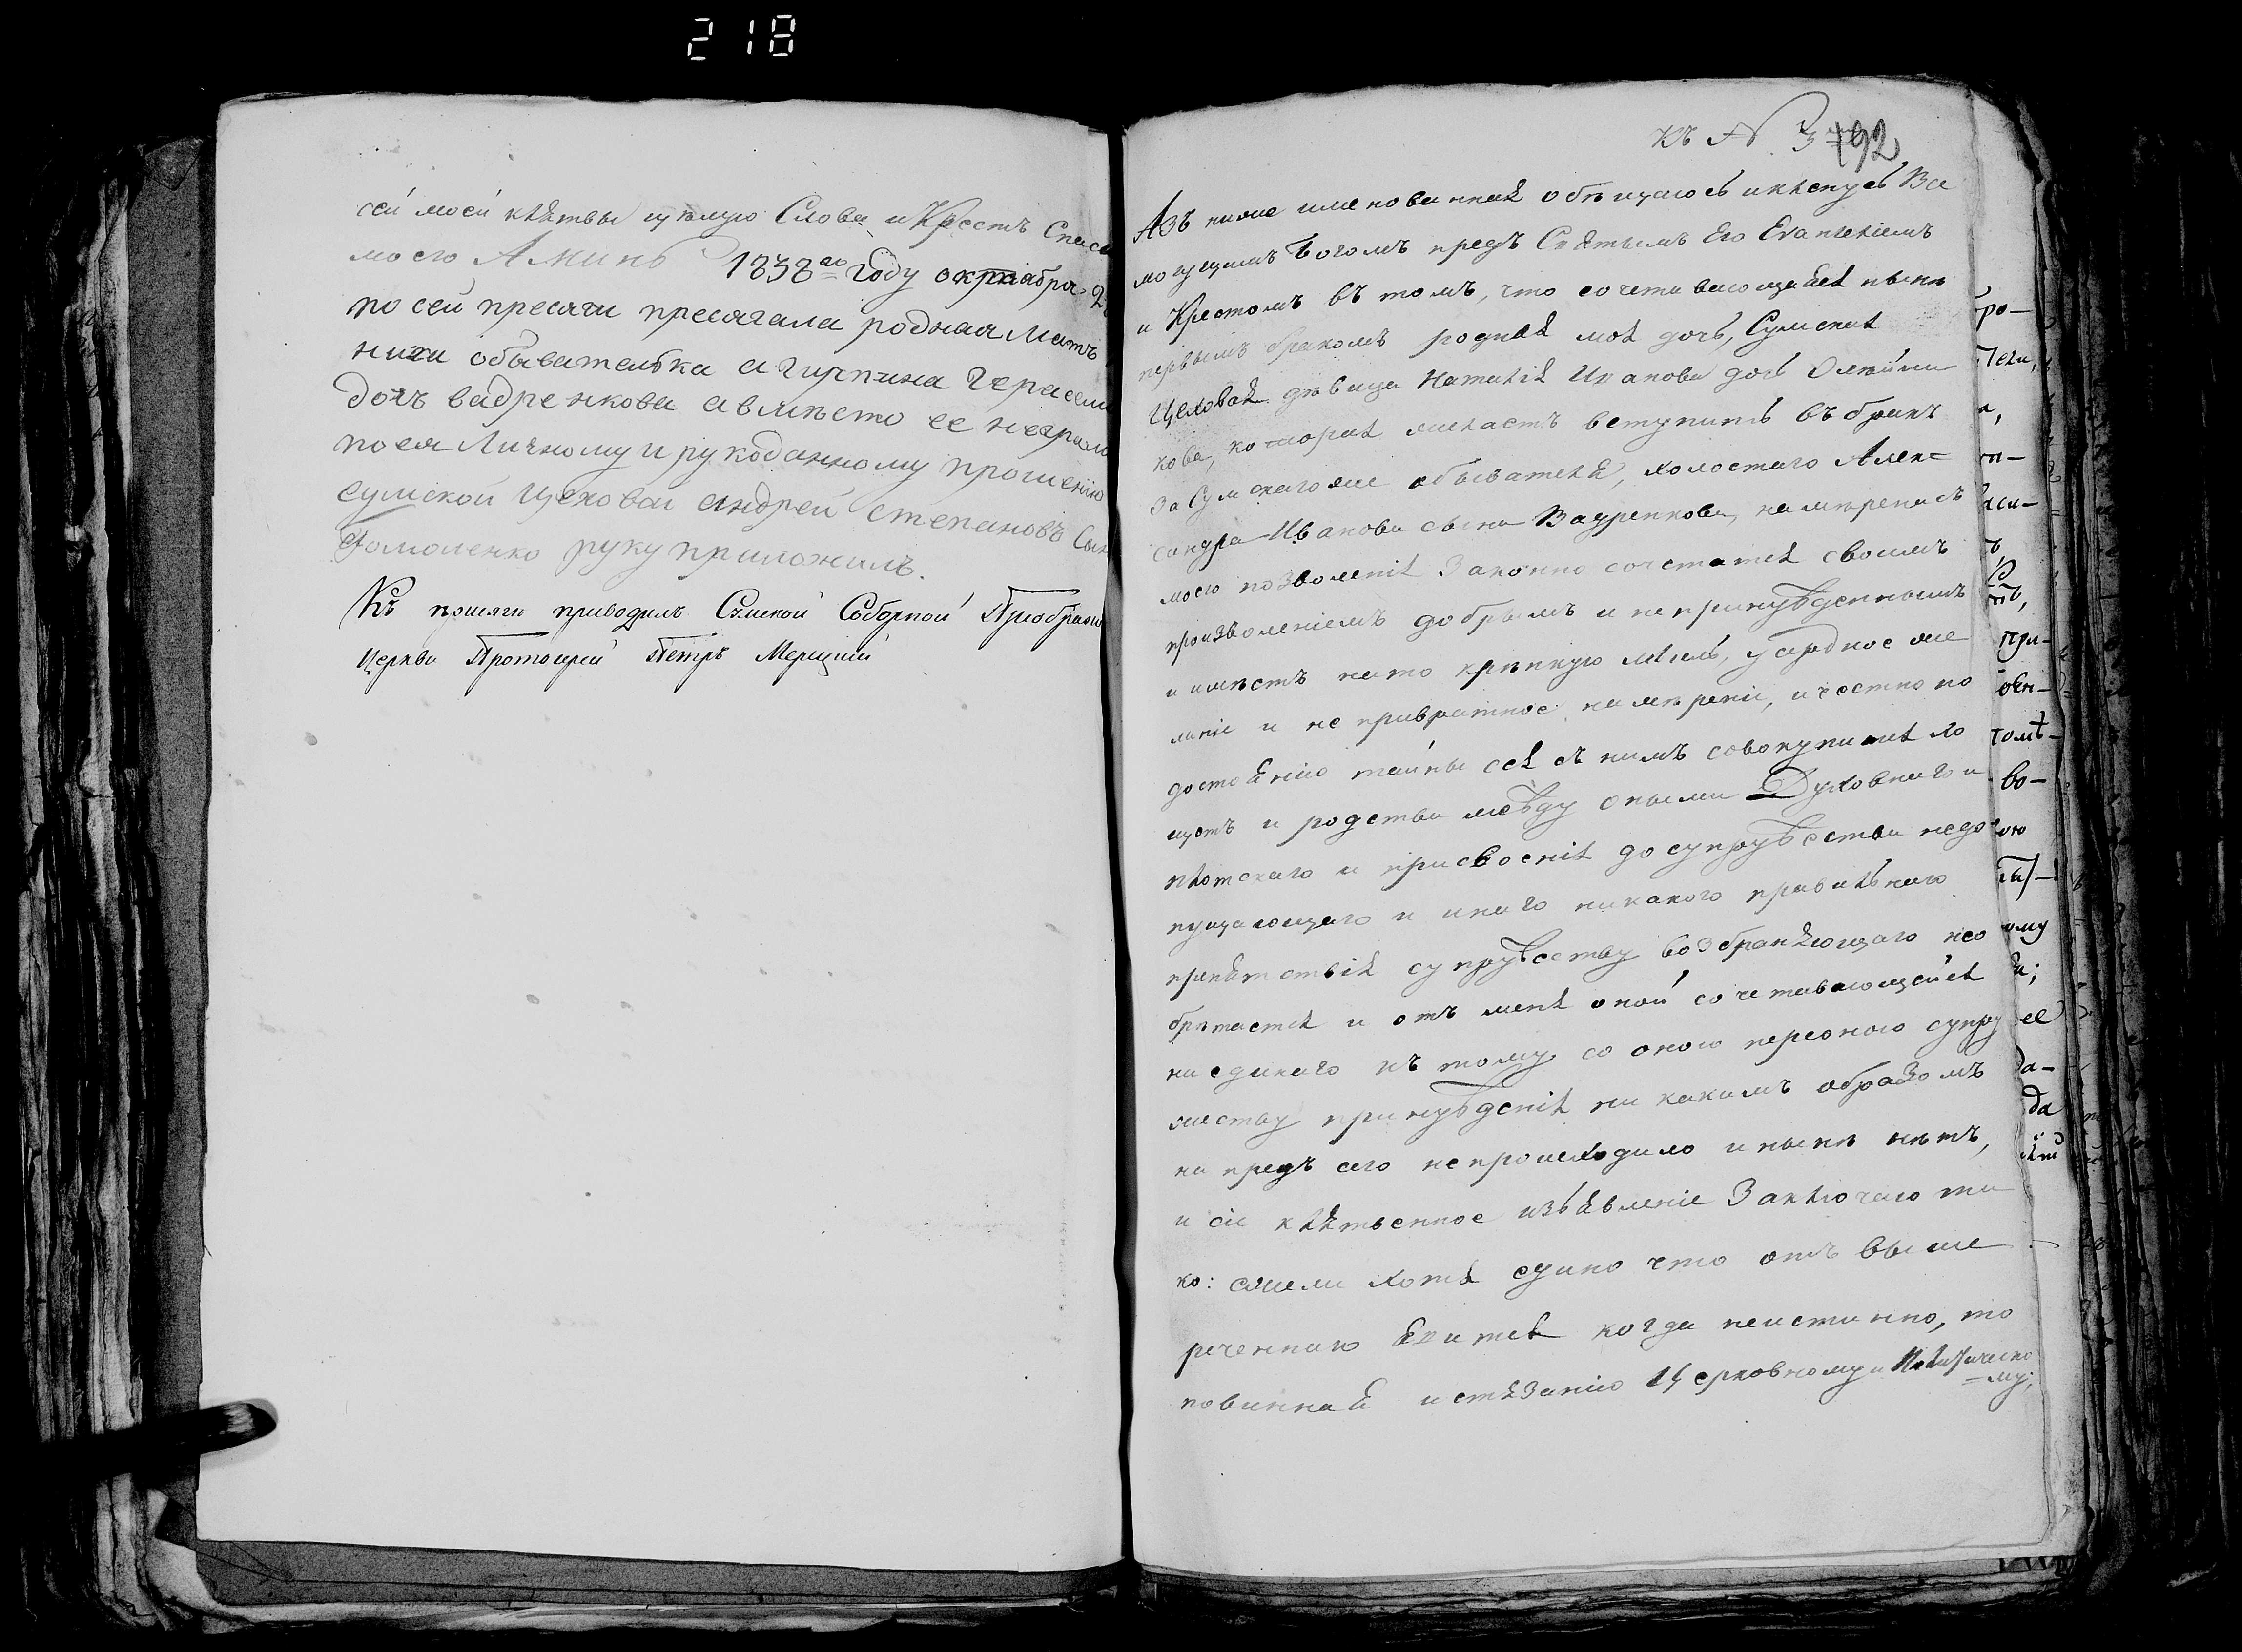 218
сей моей клятвы цѣлую Слова и Крестъ Спаси
моего Аминь 1838го году октиабра 2
по сей пресяги пресягала родная Матъ
ниха обывателька агирпина Герасем
дочъ вадренкова авмѣсто ее неграмо
поея Личному и рукоданному прошению
сумской Цеховой андрей степановъ Сын
Гомоленко руку приложилъ.
Къ присяги приводилъ Сумской Соборной Преображ
Церкви Протоіерей Петръ Мерцкій
къ № 3 192
Азъ ниже именованная обѣщаюсь и клянусь Все
могущимъ Богомъ предъ Святымъ Его Евангеліемъ
и Крестомъ въ томъ, что сочетавающаяся нынѣ
первымъ бракомъ родная моя дочь, Сумская
Цеховая дѣвица Наталія Иванова дочь Олейни
кова, которая желаетъ вступить въ бракъ
за Сумскаго же обывателя, холостаго Алек=
сандра Иванова сына Вадренкова, намѣрена съ
моего позволенія Законно сочетатся своимъ
произволеніемъ добрымъ и непринужденнымъ
и имѣетъ на то крѣпкую мысль, усердное же
ланіе и не привратное намѣреніе, и честно по
достоянію тайны сея съ нимъ совокупится хо
щетъ и родства между оными Духовнаго и
плотскаго и присвоенія до супружества недо
пущающаго и инаго никакого правильнаго
препятствія супружеству возбраняющаго нео
брѣтается и отъ меня оной сочетавающейся
ни единаго къ тому со оною персоною супру
жеству принужденія ни какимъ образомъ
на предъ сего непроисходило и нынѣ нѣтъ,
и сіе клятвенное изъявленіе Заключаю та
ко: ежели хотя едино что отъ выше
реченнаго явится когда неистинно, то
повинная истязанію Церковному и Политическо
=му;